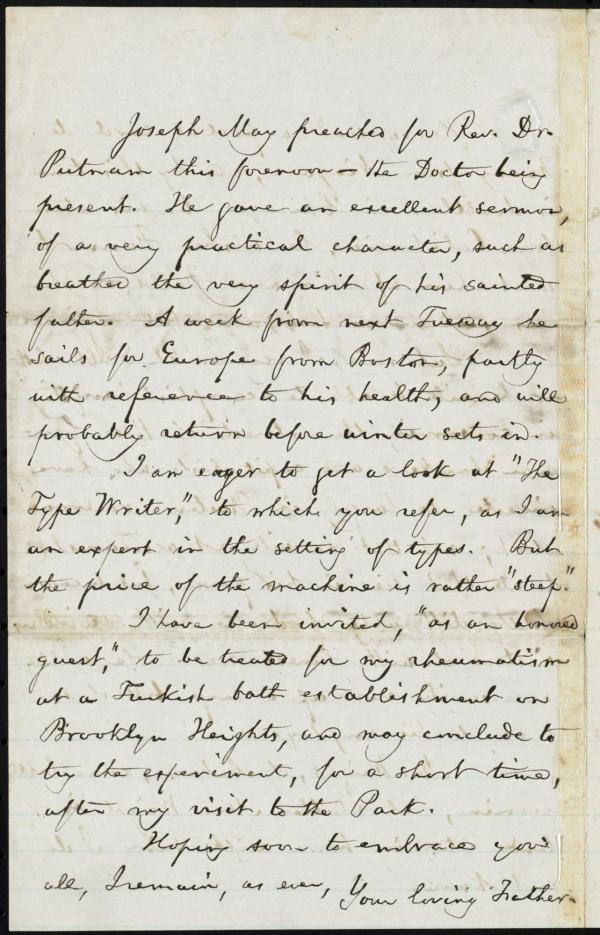 Joseph May preached for Rev. Dr.
Putnam this forenoon — the Doctor being
present. He gave an excellent sermon,
of a very practical character, such as
breathed the very spirit of his sainted
father. A week from next Tuesday he
sails for Europe from Boston, partly
with reference to his health, and will
probably return before winter sets in.
I am eager to get a look at "The
Type Writer," to which you refer, as I am
an expert in the setting of types. But
the price of the machine is rather "steep."
I have been invited, "as an honored
guest," to be treated for my rheumatism
at a Turkish bath establishment on
Brooklyn Heights, and may conclude to
try the experiment, for a short time,
after my visit to the Park.
Hoping soon to embrace you
all, I remain, as ever, Your loving Father.